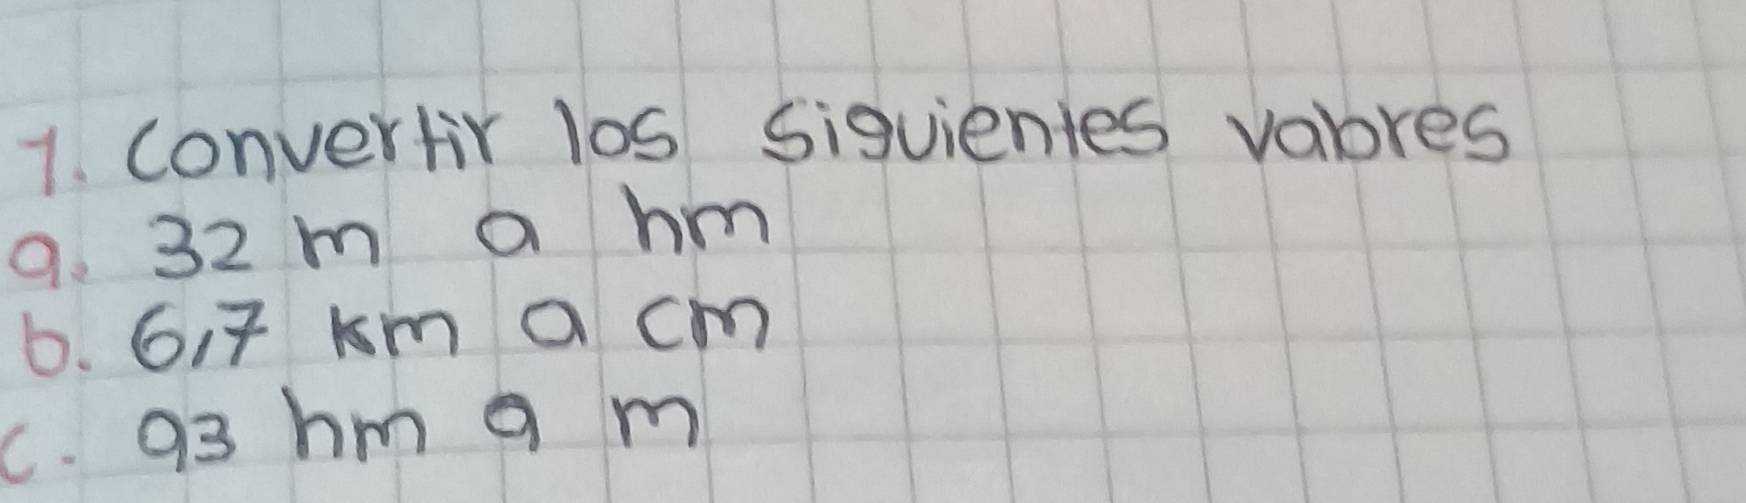 1. Convertir los siguientes valores
a. 32 m a hm
b. 6,7 km a cm
c. 93 hm a m